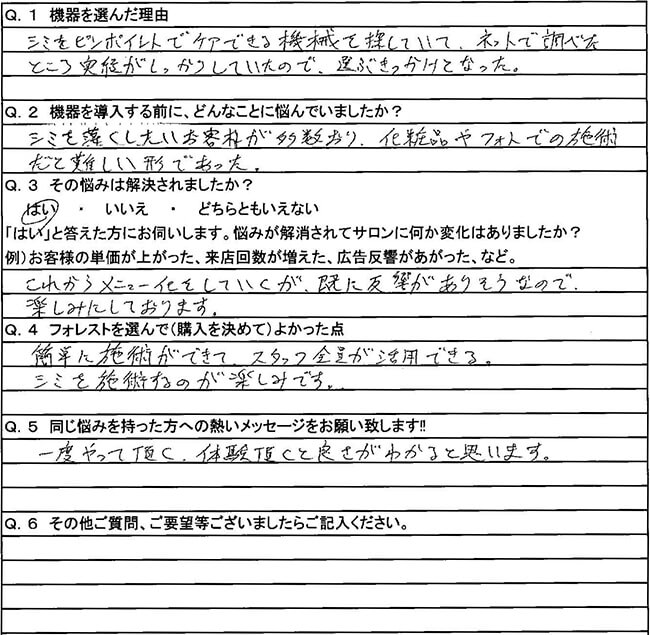 Q. 1 機器を選んだ理由
シミをピンポイントでケアできる機械を探していて、ネットで調べた
ところ実績がしっかりしていたので、選ぶきっかけとなった。
Q. 2 機器を導入する前に、どんなことに悩んでいましたか?
シミを薄くしたいお客様が多数おり、化粧品やフォトでの施術
だと難しい形であった。
Q. 3 その悩みは解決されましたか?
はい ・ いいえ ・ どちらともいえない
「はい」と答えた方にお伺いします。悩みが解消されてサロンに何か変化はありましたか?
例)お客様の単価が上がった、来店回数が増えた、広告反響があがった、など。
これからメニュー化をしていくが、既に反響がありそうなので、
楽しみにしております。
Q. 4 フォレストを選んで(購入を決めて)よかった点
簡単に施術ができて、スタッフ全員が活用できる。
シミを施術するのが楽しみです。
Q. 5 同じ悩みを持った方への熱いメッセージをお願い致します!!
一度やって頂く、体験頂くと良さがわかると思います。
Q. 6 その他ご質問、ご要望等ございましたらご記入ください。